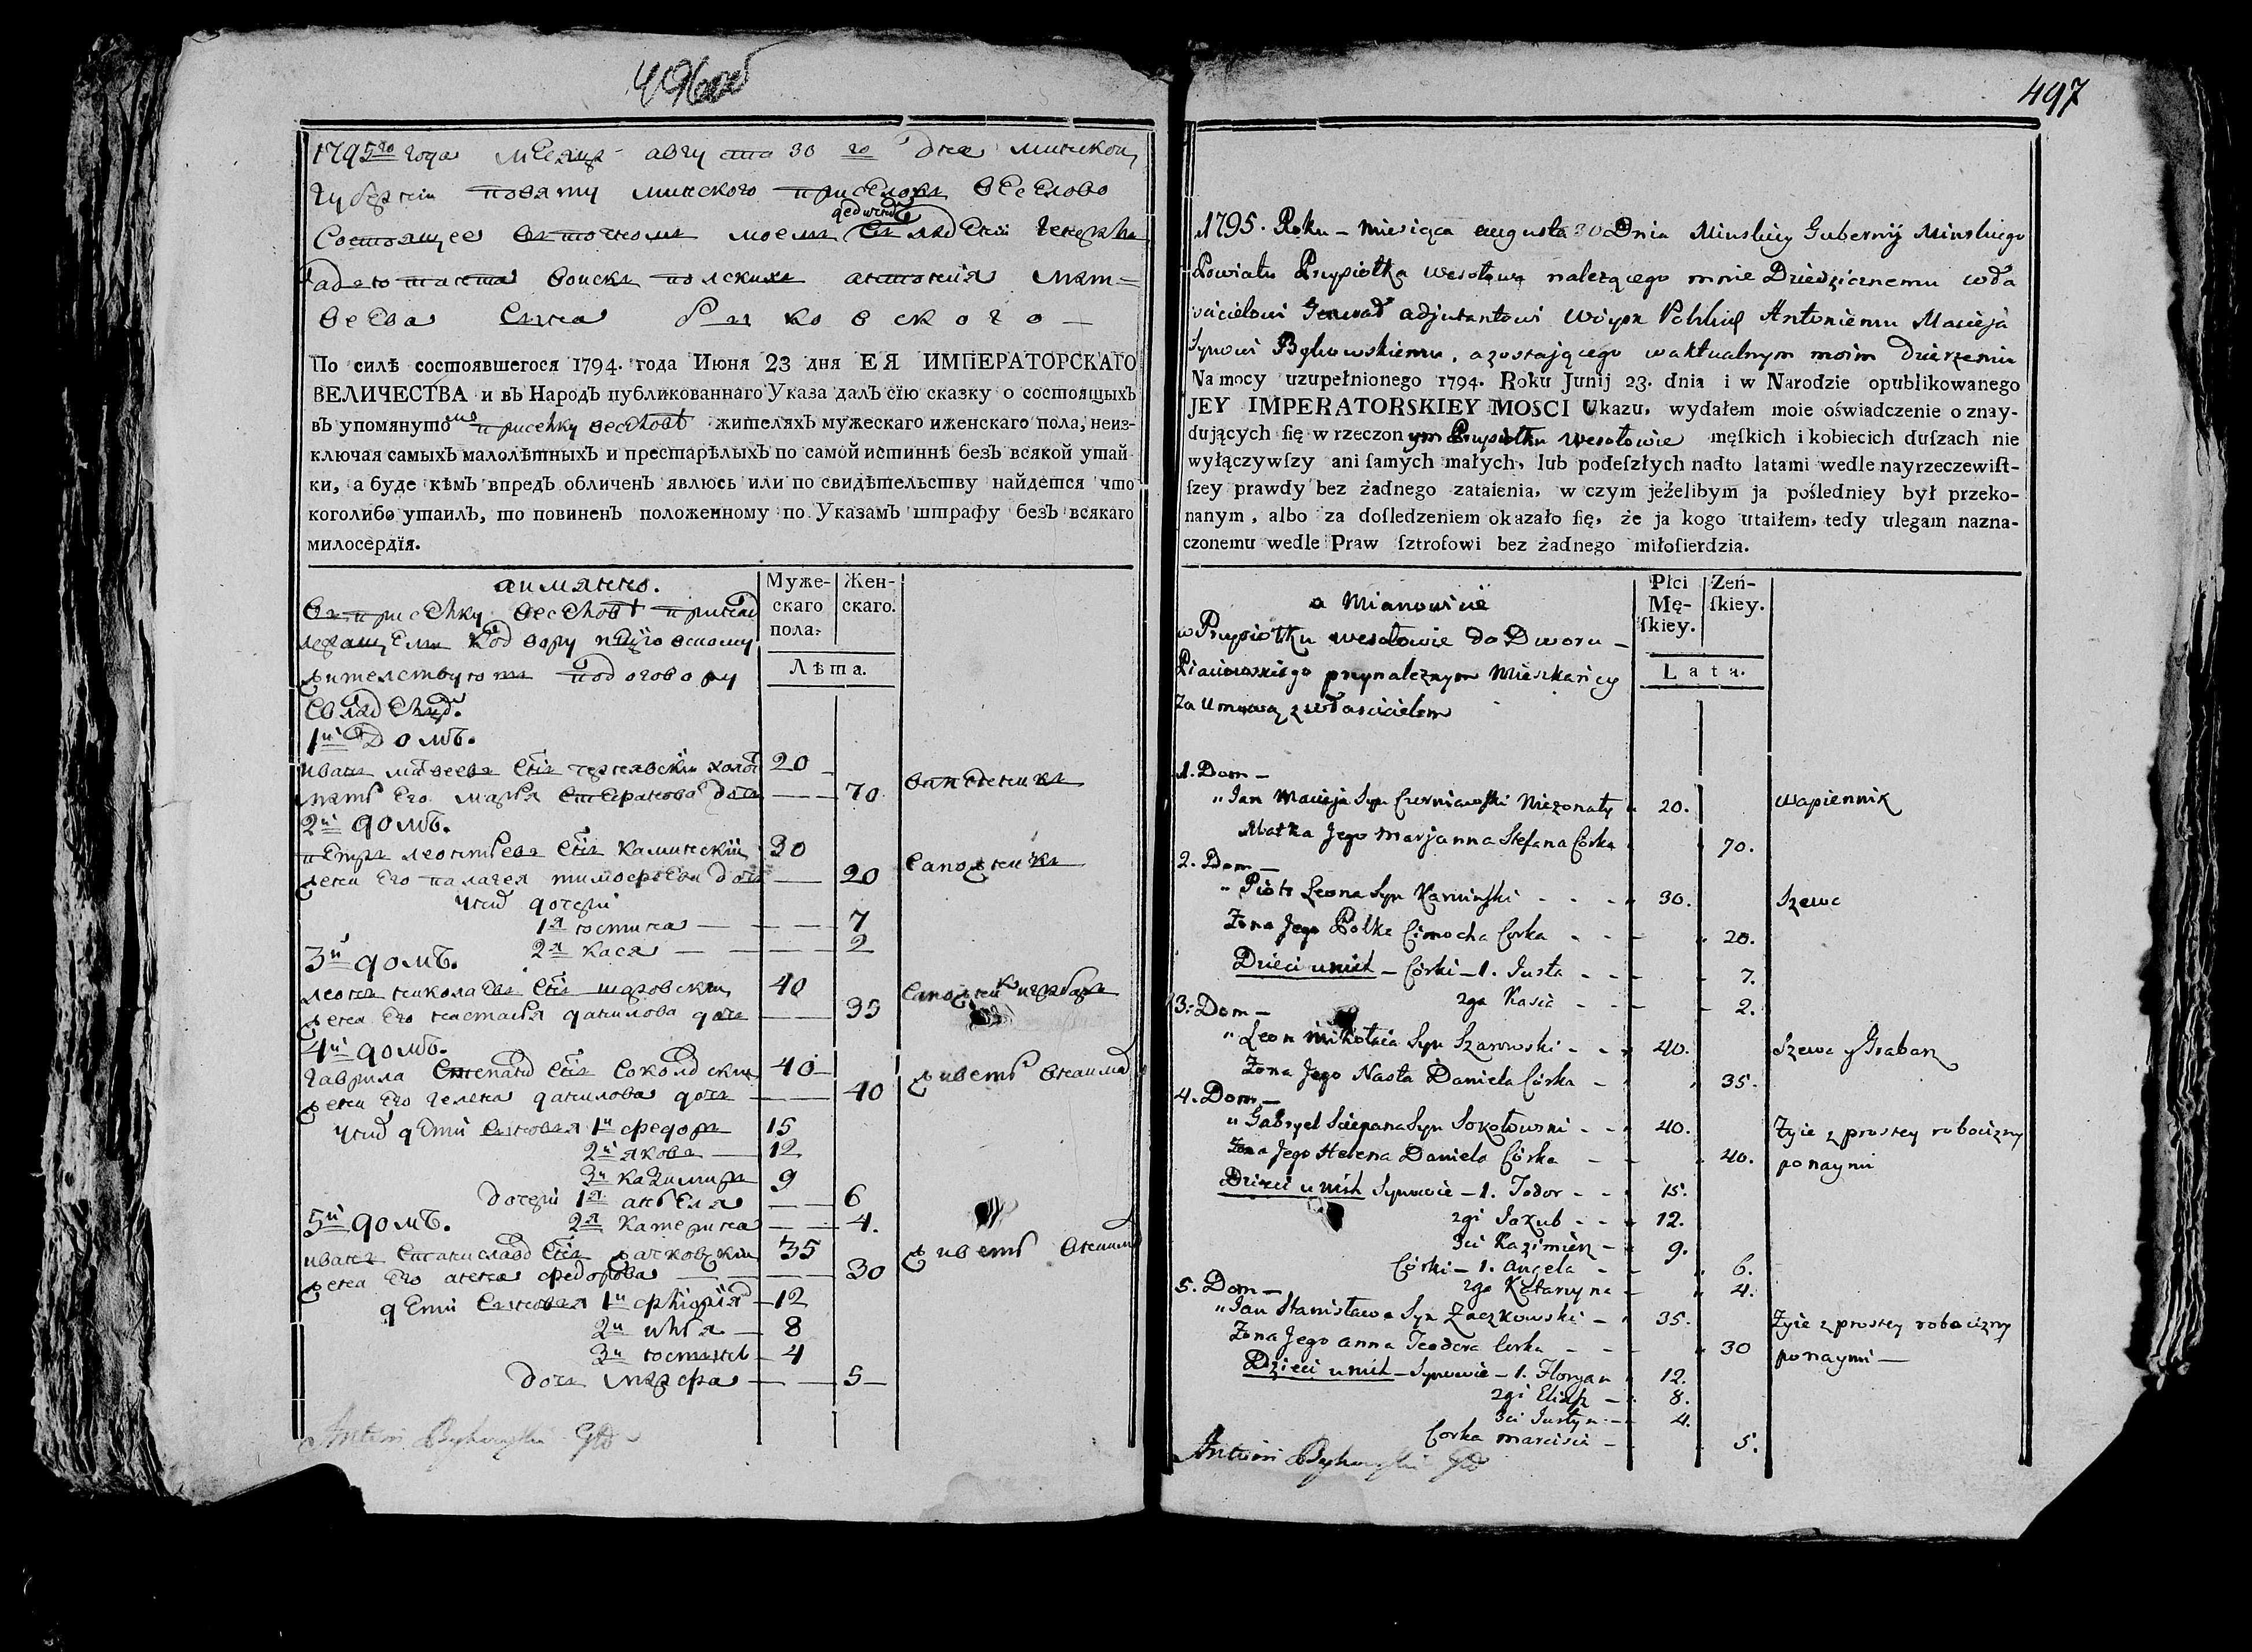 496 об
1795го года месяца августа 30 го дня минской
губернии повяту минского приселокъ веселово
дедичной
состоящее въ точномъ моемъ владении генералъ
адьютанта войскъ полскихъ антония мат=
веева сына быковского —
По силѣ состоявшегося 1794. года Июня 23 дня ЕЯ ИМПЕРАТОРСКАГО
ВЕЛИЧЕСТВА и въ Народъ публикованнаго Указа далъ сїю сказку о состоящыхъ
въ упомянутомъ приселку веселове жителяхъ мужескаго иженскаго пола, неиз-
ключая самыхъ малолѣтныхъ и престарѣлыхъ по самой истиннѣ безъ всякой утай-
ки, а буде кѣмъ впредъ обличенъ явлюсь или по свидѣтельству найдется что
коголибо утаилъ, то повиненъ положенному по Указамъ штрафу безъ всякаго
милосердїя.
аимянно.
Муже-
скаго
пола.
Жен-
скаго.
Лѣта.
въ приселку веселове принад
лежащемъ кодвору
жителствуютъ подоговору
свладелц.
1й домъ.
иванъ матвеевъ сынъ чернявский холост 20
мать его марья стефанова дочь — 70
вапненикъ
2й домъ.
петръ леонтьевъ сынъ каминский 30
жена его палагея тимофеева дочь — 20
сапожникъ
у них дочери
1я юстина — 7
2я кася — 2
3й домъ.
леонъ николаевъ сынъ шаровский 40
жена его настасья данилова дочь — 35
сапожник играбаръ
4й домъ.
гаврила степанов сынъ соколовский 40
жена его гелена данилова дочь — 40
живетъ внаима
у них дети сыновья 1й федоръ 15
2й яковъ 12
3й казимиръ 9
дочери 1я анъеля — 6
2я катерина — 4.
5й домъ.
иванъ станиславов сынъ жачковский 35
жена его анна федорова — 30
живетъ внаима
дети сыновья 1й флориан 12
2й илья — 8
3й юстин — 4
дочь марфа — 5 —
Antoni Bykowski
497
1795. Roku – miesiąca augusta 30 Dnia Minskiey Gubernij Minskiego
Powiatu Przysiołka Wesołowa nalezącego mnie Dziedzicznemu wła
scicielowi Generał adjutantowi Woysk Polskich Antoniemu Macieja
Synowi Bykowskiemu, azostającego waktualnym moim dzierzeniu
Na mocy uzupełnionego 1794. Roku Junij 23. dnia i w Narodzie opublikowanego
JEY IMPERATORSKIEY MOSCI Ukazu, wydałem moie oświadczenie o znay-
dujących ſię w rzeczonym Przysiołku Wesołowie męſkich i kobiecich duſzach nie
wyłączywſzy ani ſamych małych, lub podeſzłych nadto latami wedle nayrzeczewiſt-
ſzey prawdy bez żadnego zataienia, w czym jeżelibym ja pośledniey był przeko-
nanym, albo za doſledzeniem okazało ſię, że ja kogo utaiłem, tedy ulegam nazna-
czonemu wedle Praw ſztrofowi bez żadnego miłoſierdzia.
a Mianowicie
Płci
Mę-
ſkiey.
Zeń-
ſkiey.
Lata.
w Przysiołku wesołowie do Dworu –
przynaleznym Mieszkańcy
Za Umową z własciicielem
1. Dom –
„ Jan Macieja Syn Czerniawski Niezonaty 20.
wapiennik
Matka Jego Marjanna Stefana Córka 70.
2. Dom –
„ Piotr Leona Syn Kaminski - - - 30.
Szewc
Zona Jego Połka Cimocha Corka - - 20.
Dzieci u nich – Córki – 1. Justa - - 7.
2ga Kasia - - 2.
3. Dom –
„ Leon Mikołaia Syn Szarowski - - 40.
Szewc y Grabarz
Zona Jego Nasta Daniela Córka - 35.
4. Dom –
„ Gabryel Sciepana Syn Sokołowski - - 40.
Zyie z prostey robocizny
ponaymi
Zona Jego Helena Daniela Córka - - 40.
Dzieci u nich Synowie – 1. Fodor - - 15.
2gi Jakub - - 12.
3ci Kazimierz - 9.
Córki – 1. Angela - - 6.
2ga Katarzyna - 4.
5. Dom –
„ Jan Stanisława Syn Zaczkowski - 35.
Zyie z prostey robocizny
ponaymi –
Zona Jego Anna Teodora Corka - - 30
Dzieci u nich – Synowie – 1. Floryan 12.
2gi Eliasz - 8.
3ci Justyn - 4.
Corka Marcisia - 5.
Antoni Bykowski